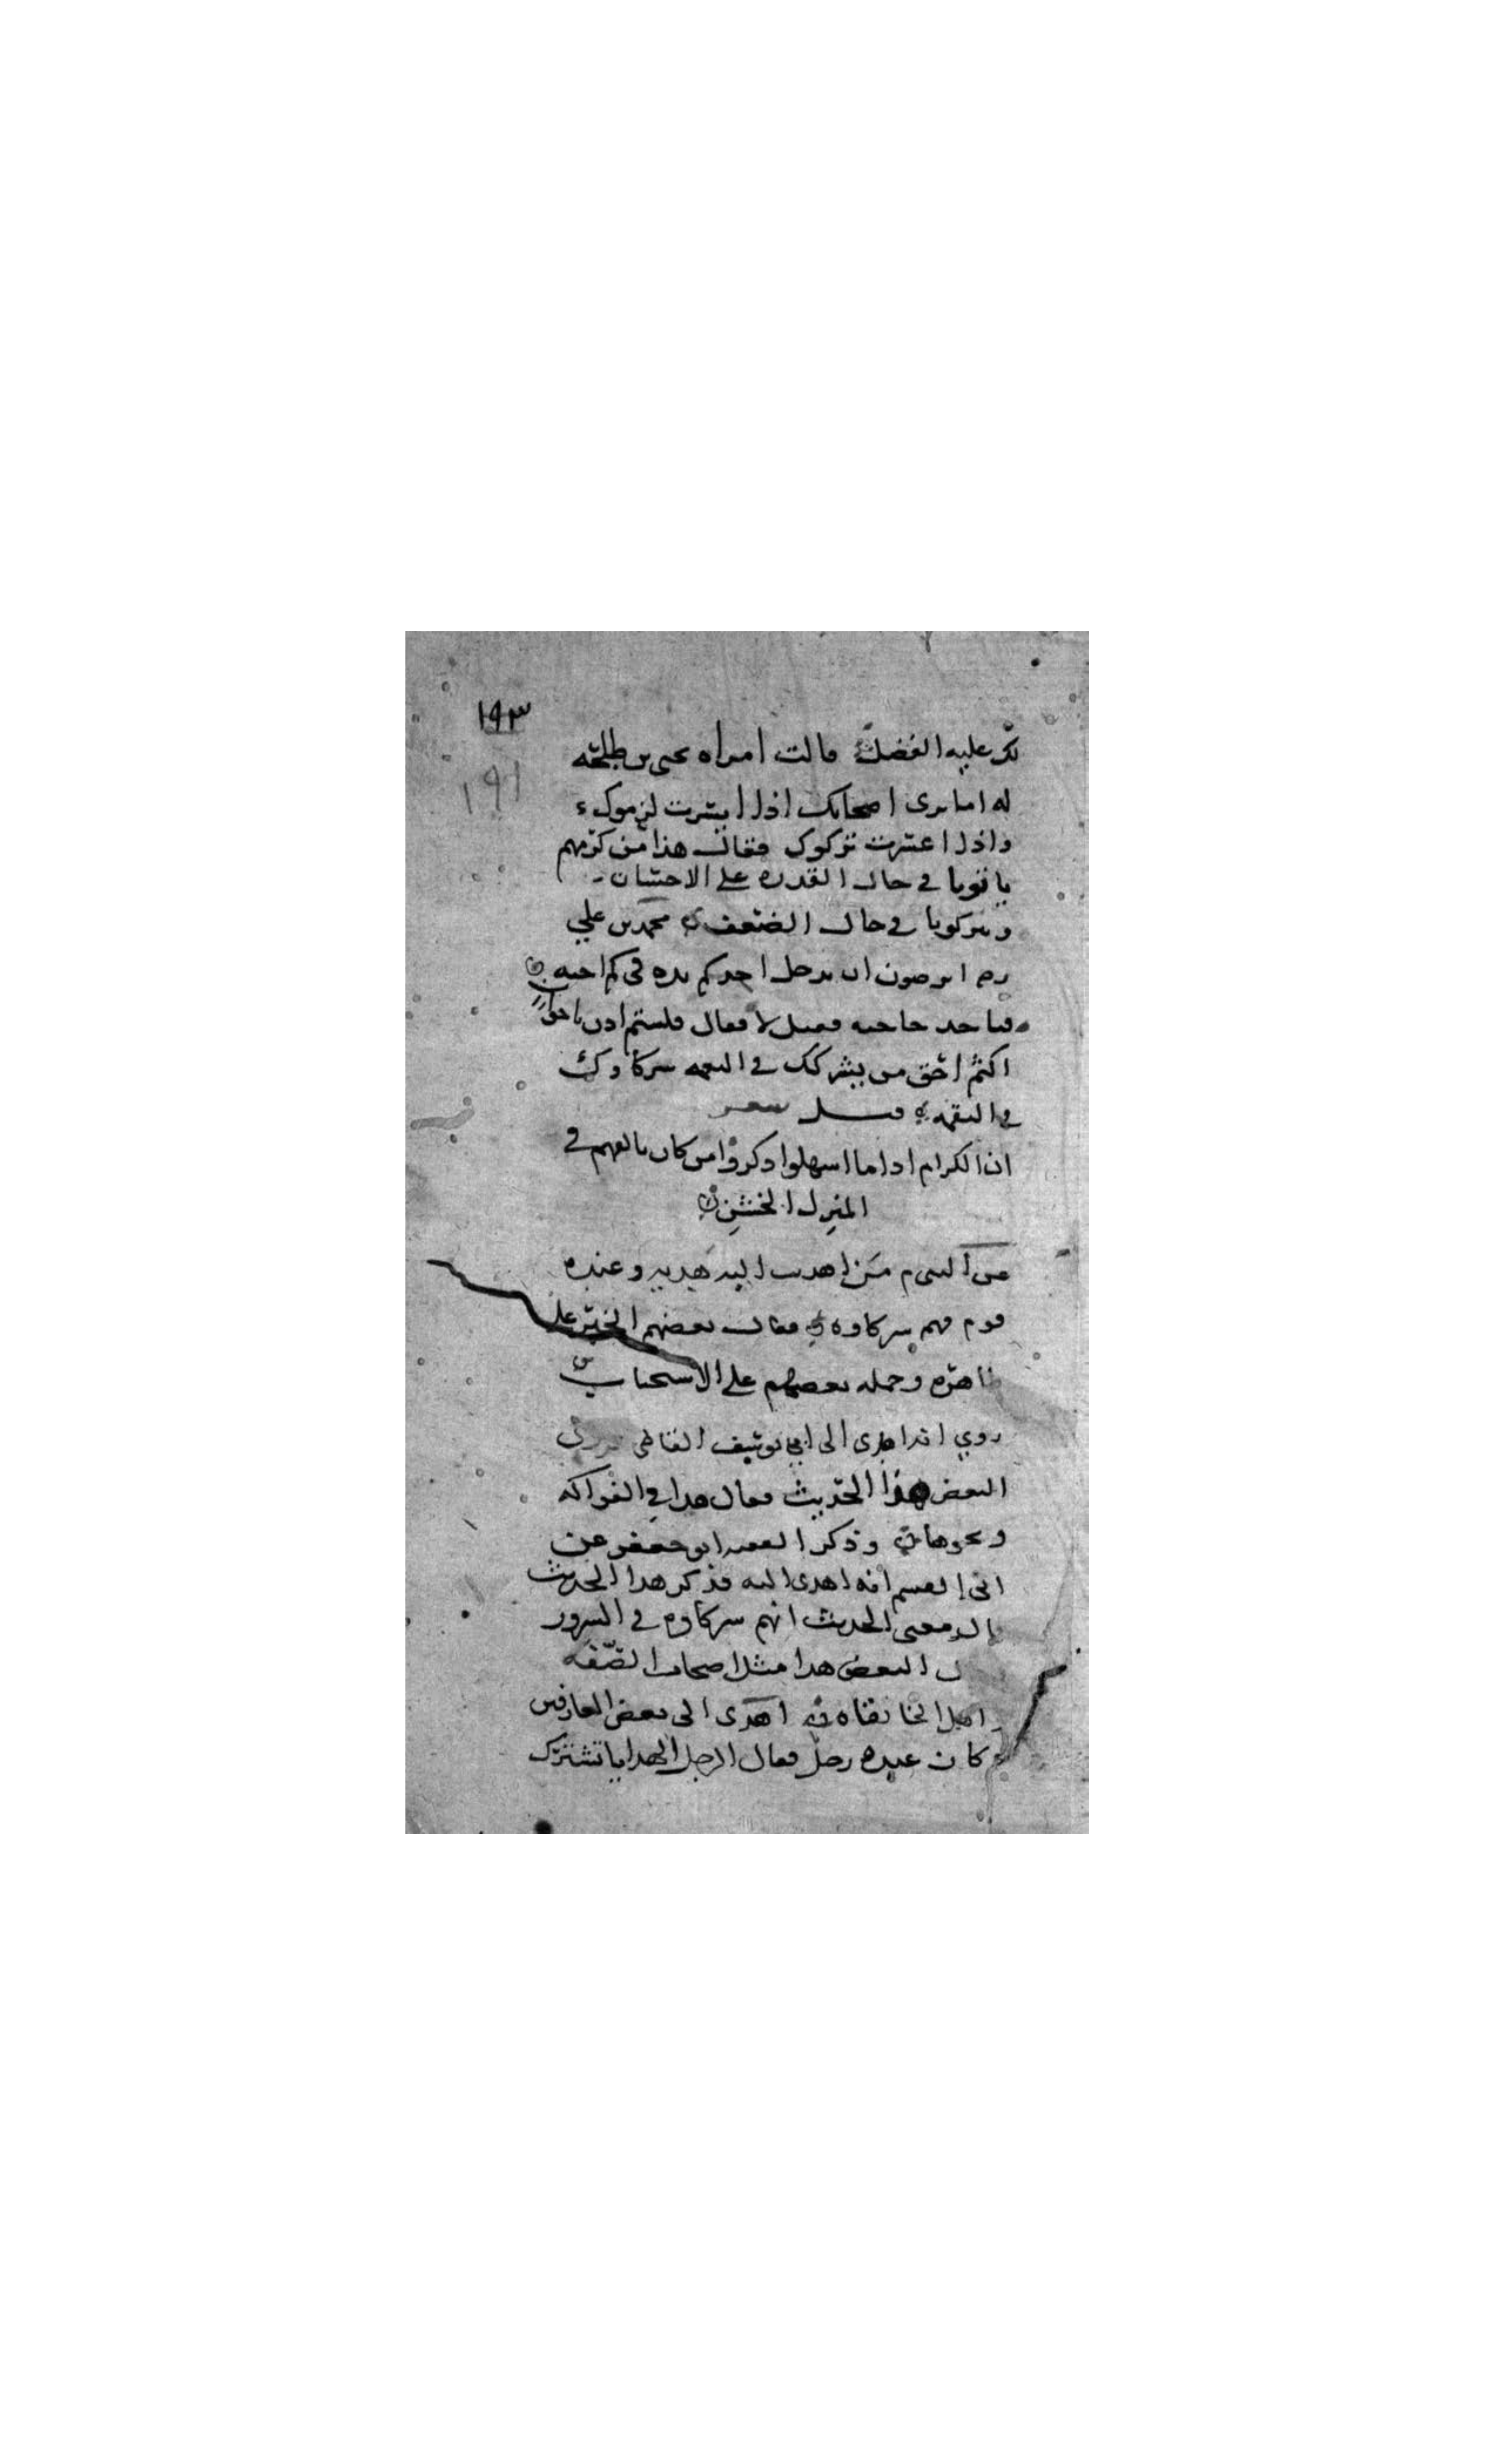 ١٩٣
١٩١
لك عليه الفضل قالت امراه يحيى بن طلحه
له اما ترى اصحابك اذا ايسرت لزموك
واذا اعسرت تركوك فقال هذا من كرمهم
ياتونا في حال القدره على الاحسان
ويتركونا في حال الضعف محمد بن علي
رح ا ترضون ان يدخل احدكم يده في كم اخيه
فياخذ حاجته فقيل لا فقال فلستم اذن باخوان
اكثم احق من يشركك في النعمه شركاوك
في النقمه قيل شعر
ان الكرام اذا ما اسهلوا ذكروا من كان يالفهم في
المنزل الخشن
عن النبي م من اهديت اليه هديه وعنده
قوم فهم شركاوه فقال بعضهم الخبر على
ظاهره وحمله بعضهم على الاستحباب
روي انه اهدى الى ابي يوسف القاضي
البعض هذا الحديث فقال هذا في الفواكه
ونحوها وذكر الفقيه ابو جعفر عن
ابي القسم انه اهدى اليه فذكر هذا الحديث
قال معنى الحديث انهم شركاوه في السرور
البعض هذا مثل اصحاب الصفه
واهل الخانقاه اهدى الى بعض العارفين
وكان عنده رجل فقال الرجل الهدايا تشترك